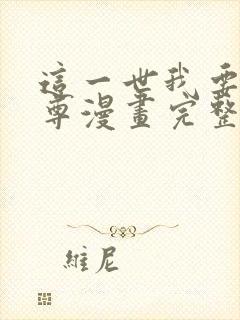 這一世我要
尊漫畫完整
維尼